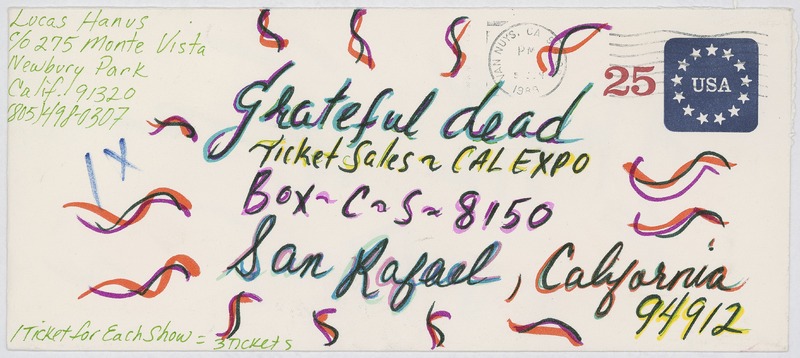 Lucas Hanus
c/o 275 Monte Vista
Newbury Park
Calif. 91320
(805) 498-0307
VAN NUYS, CA
PM
1989
25
USA
Grateful dead
Ticket Sales ~ CAL EXPO
1X
Box ~ C ~ S ~ 8150
San Rafael, California
94912
1 Ticket for Each Show = 3 Tickets